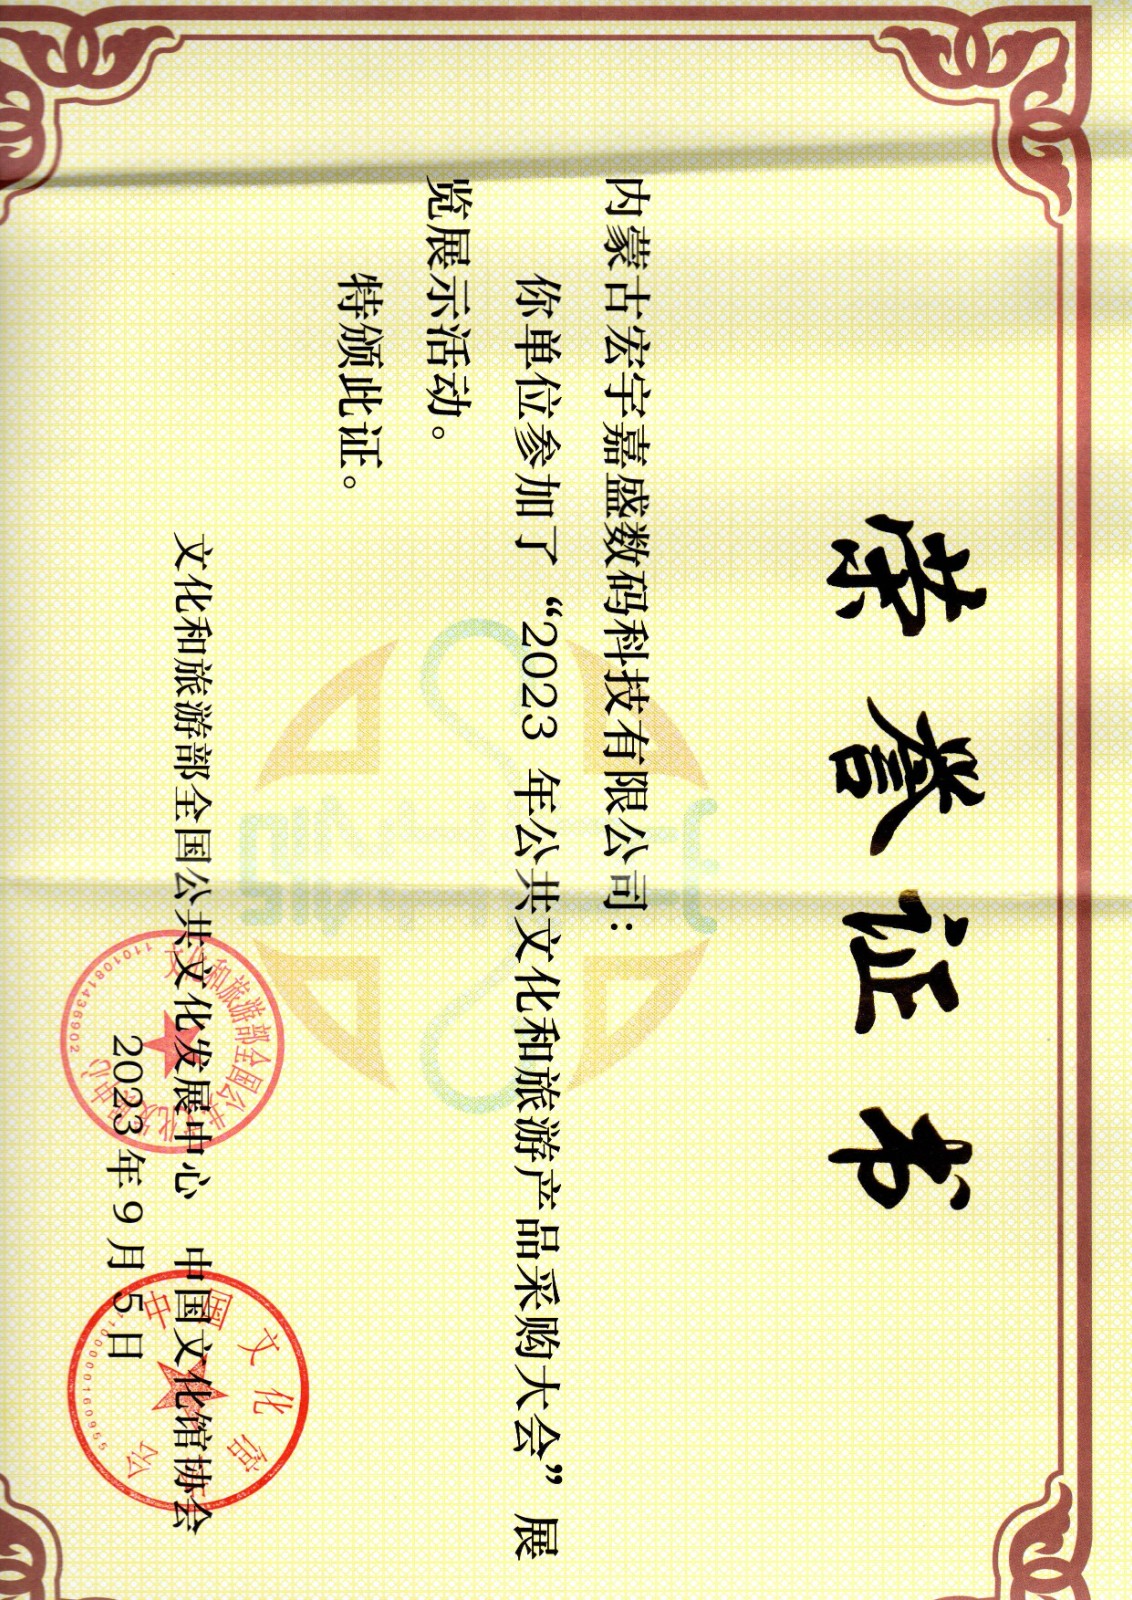 荣誉证书
内蒙古宏宇嘉盛数码科技有限公司：
你单位参加了“2023 年公共文化和旅游产品采购大会”展
览展示活动。
特颁此证。
文化和旅游部全国公共文化发展中心 中国文化馆协会
2023年9月5日
文化和旅游部全国公共文化发展中心
1101081436902
中国文化馆协会